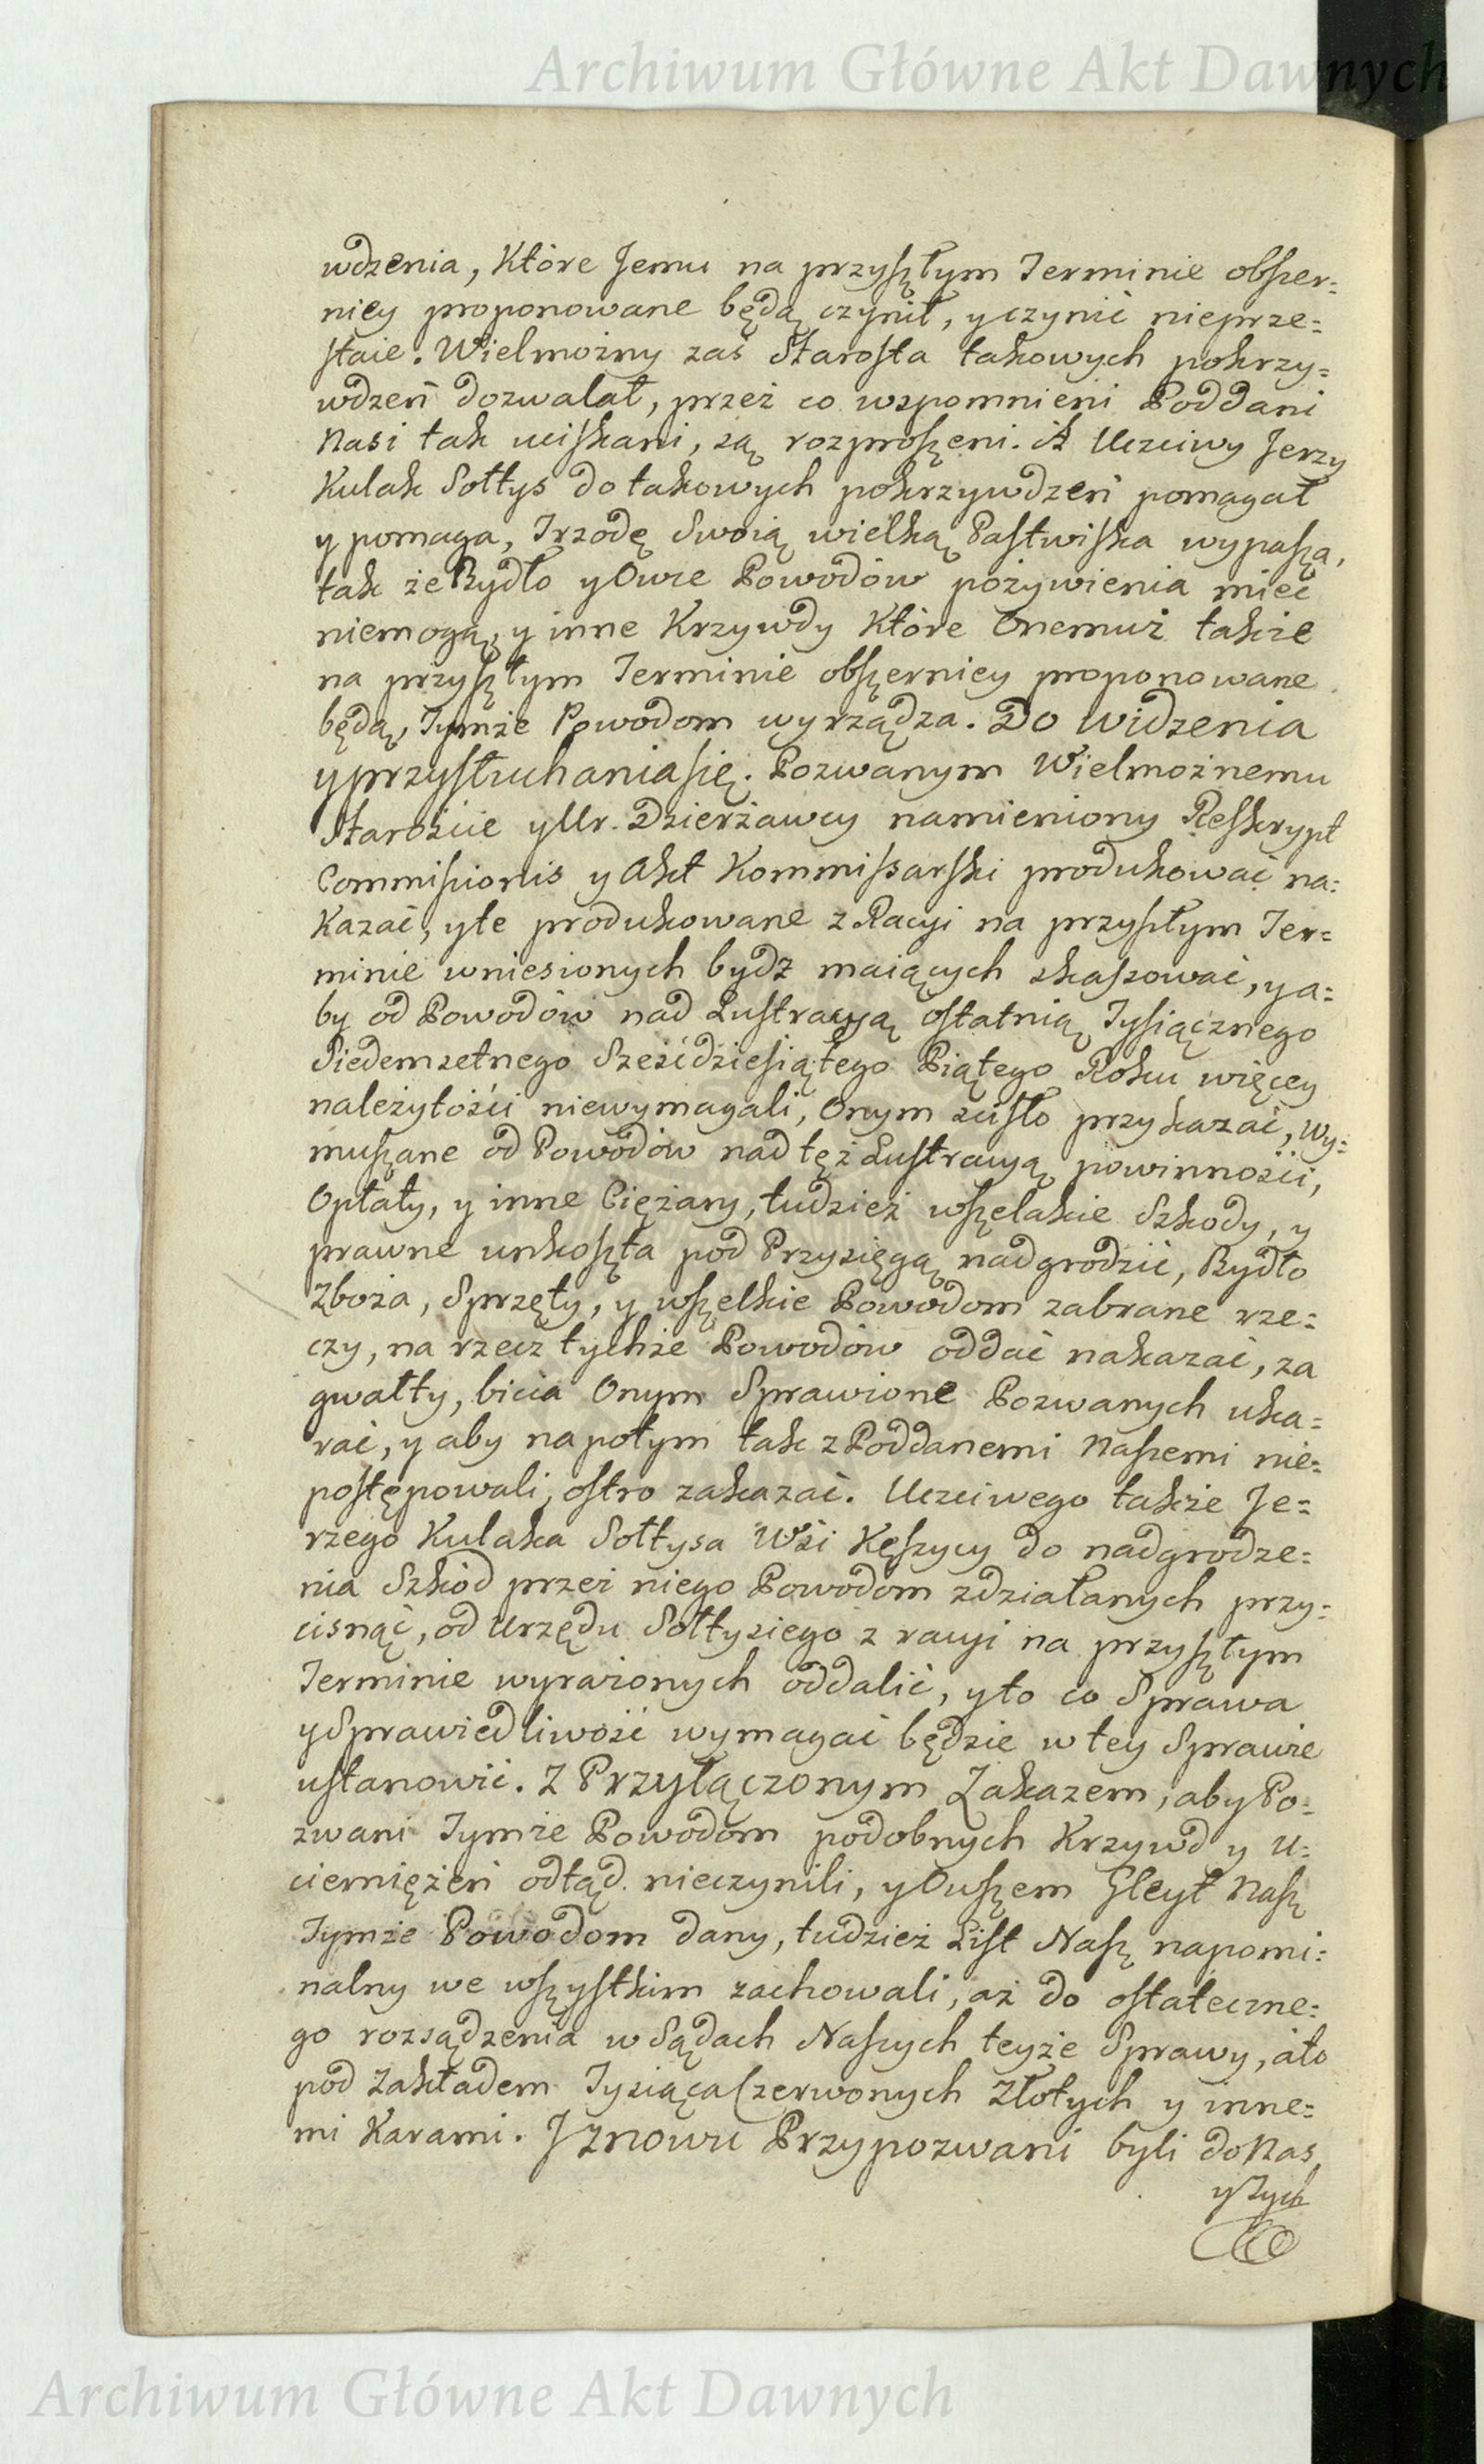 Archiwum Główne Akt Dawnych
wdzenia, Które Jemu na przyszłym Terminie obszer=
niey proponowane będą czynił, y czynić nieprze=
staie. Wielmożny zaś Starosta takowych pokrzy=
wdzeń dozwalał, przez co wspomnieni Poddani
Nasi tak uciskani, są rozproszeni. A Uczciwy Jerzy
Kulak Sołtys do takowych pokrzywdzeń pomagał
y pomaga, Trzodę Swoią wielką Pastwiska wypasza,
tak że Bydło y Owce Powodów pożywienia mieć
niemogą, y inne Krzywdy Które Onemuż także
na przyszłym Terminie obszerniey proponowane
będą, Tymże Powodom wyrządza. Do widzenia
y przysłuchania się. Pozwanym Wielmożnemu
Starościie y Ur. Dzierżawcy namieniony Reskrypt
Commissionis y Akt Kommissarski produkować na=
Kazać, y te produkowane z Racyi na przyszłym Ter=
minie wniesionych bydź maiących skassować, y a=
by od Powodów nad Lustracyą ostatnią Tysiącznego
Siedemsetnego Sześćdziesiątego Piątego Roku więcey
należytości niewymagali, Onym scisło przykazać, Wy=
muszane od Powodów nad tęż Lustracyą powinności,
Opłaty, y inne Ciężary, tudzież wszelakie Szkody, y
prawne unkoszta pod Przysięgą nadgrodzić, Bydło
Zboża, Sprzęty, y wszelkie Powodom zabrane rze=
czy, na rzecz tychże Powodów oddać nakazać, za
gwałty, bicia Onym Sprawione Pozwanych uka=
rać, y aby napotym tak z Poddanemi Naszemi nie=
postępowali, ostro zakazać. Uczciwego także Je=
rzego Kulaka Sołtysa Wsi Kęszycy do nadgrodze=
nia Szkód przez niego Powodom zdziałanych przy=
cisnąć, od Urzędu Sołtysiego z racyi na przyszłym
Terminie wyrażonych oddalić, y to co Sprawa
y Sprawiedliwość wymagać będzie w tey Sprawie
ustanowić. Z Przyłączonym Zakazem, aby Po=
zwani Tymże Powodom podobnych Krzywd y U=
ciemiężeń odtąd nieczynili, y Owszem Gleyt Nasz
Tymże Powodom dany, tudzież List Nasz napomi=
nalny we wszystkim zachowali, aż do ostateczne=
go rozsądzenia w Sądach Naszych teyże Sprawy, a to
pod Zakładem Tysiąca Czerwonych Złotych y inne=
mi Karami. I znowu Przypozwani byli do Nas,
y Tych
Archiwum Główne Akt Dawnych